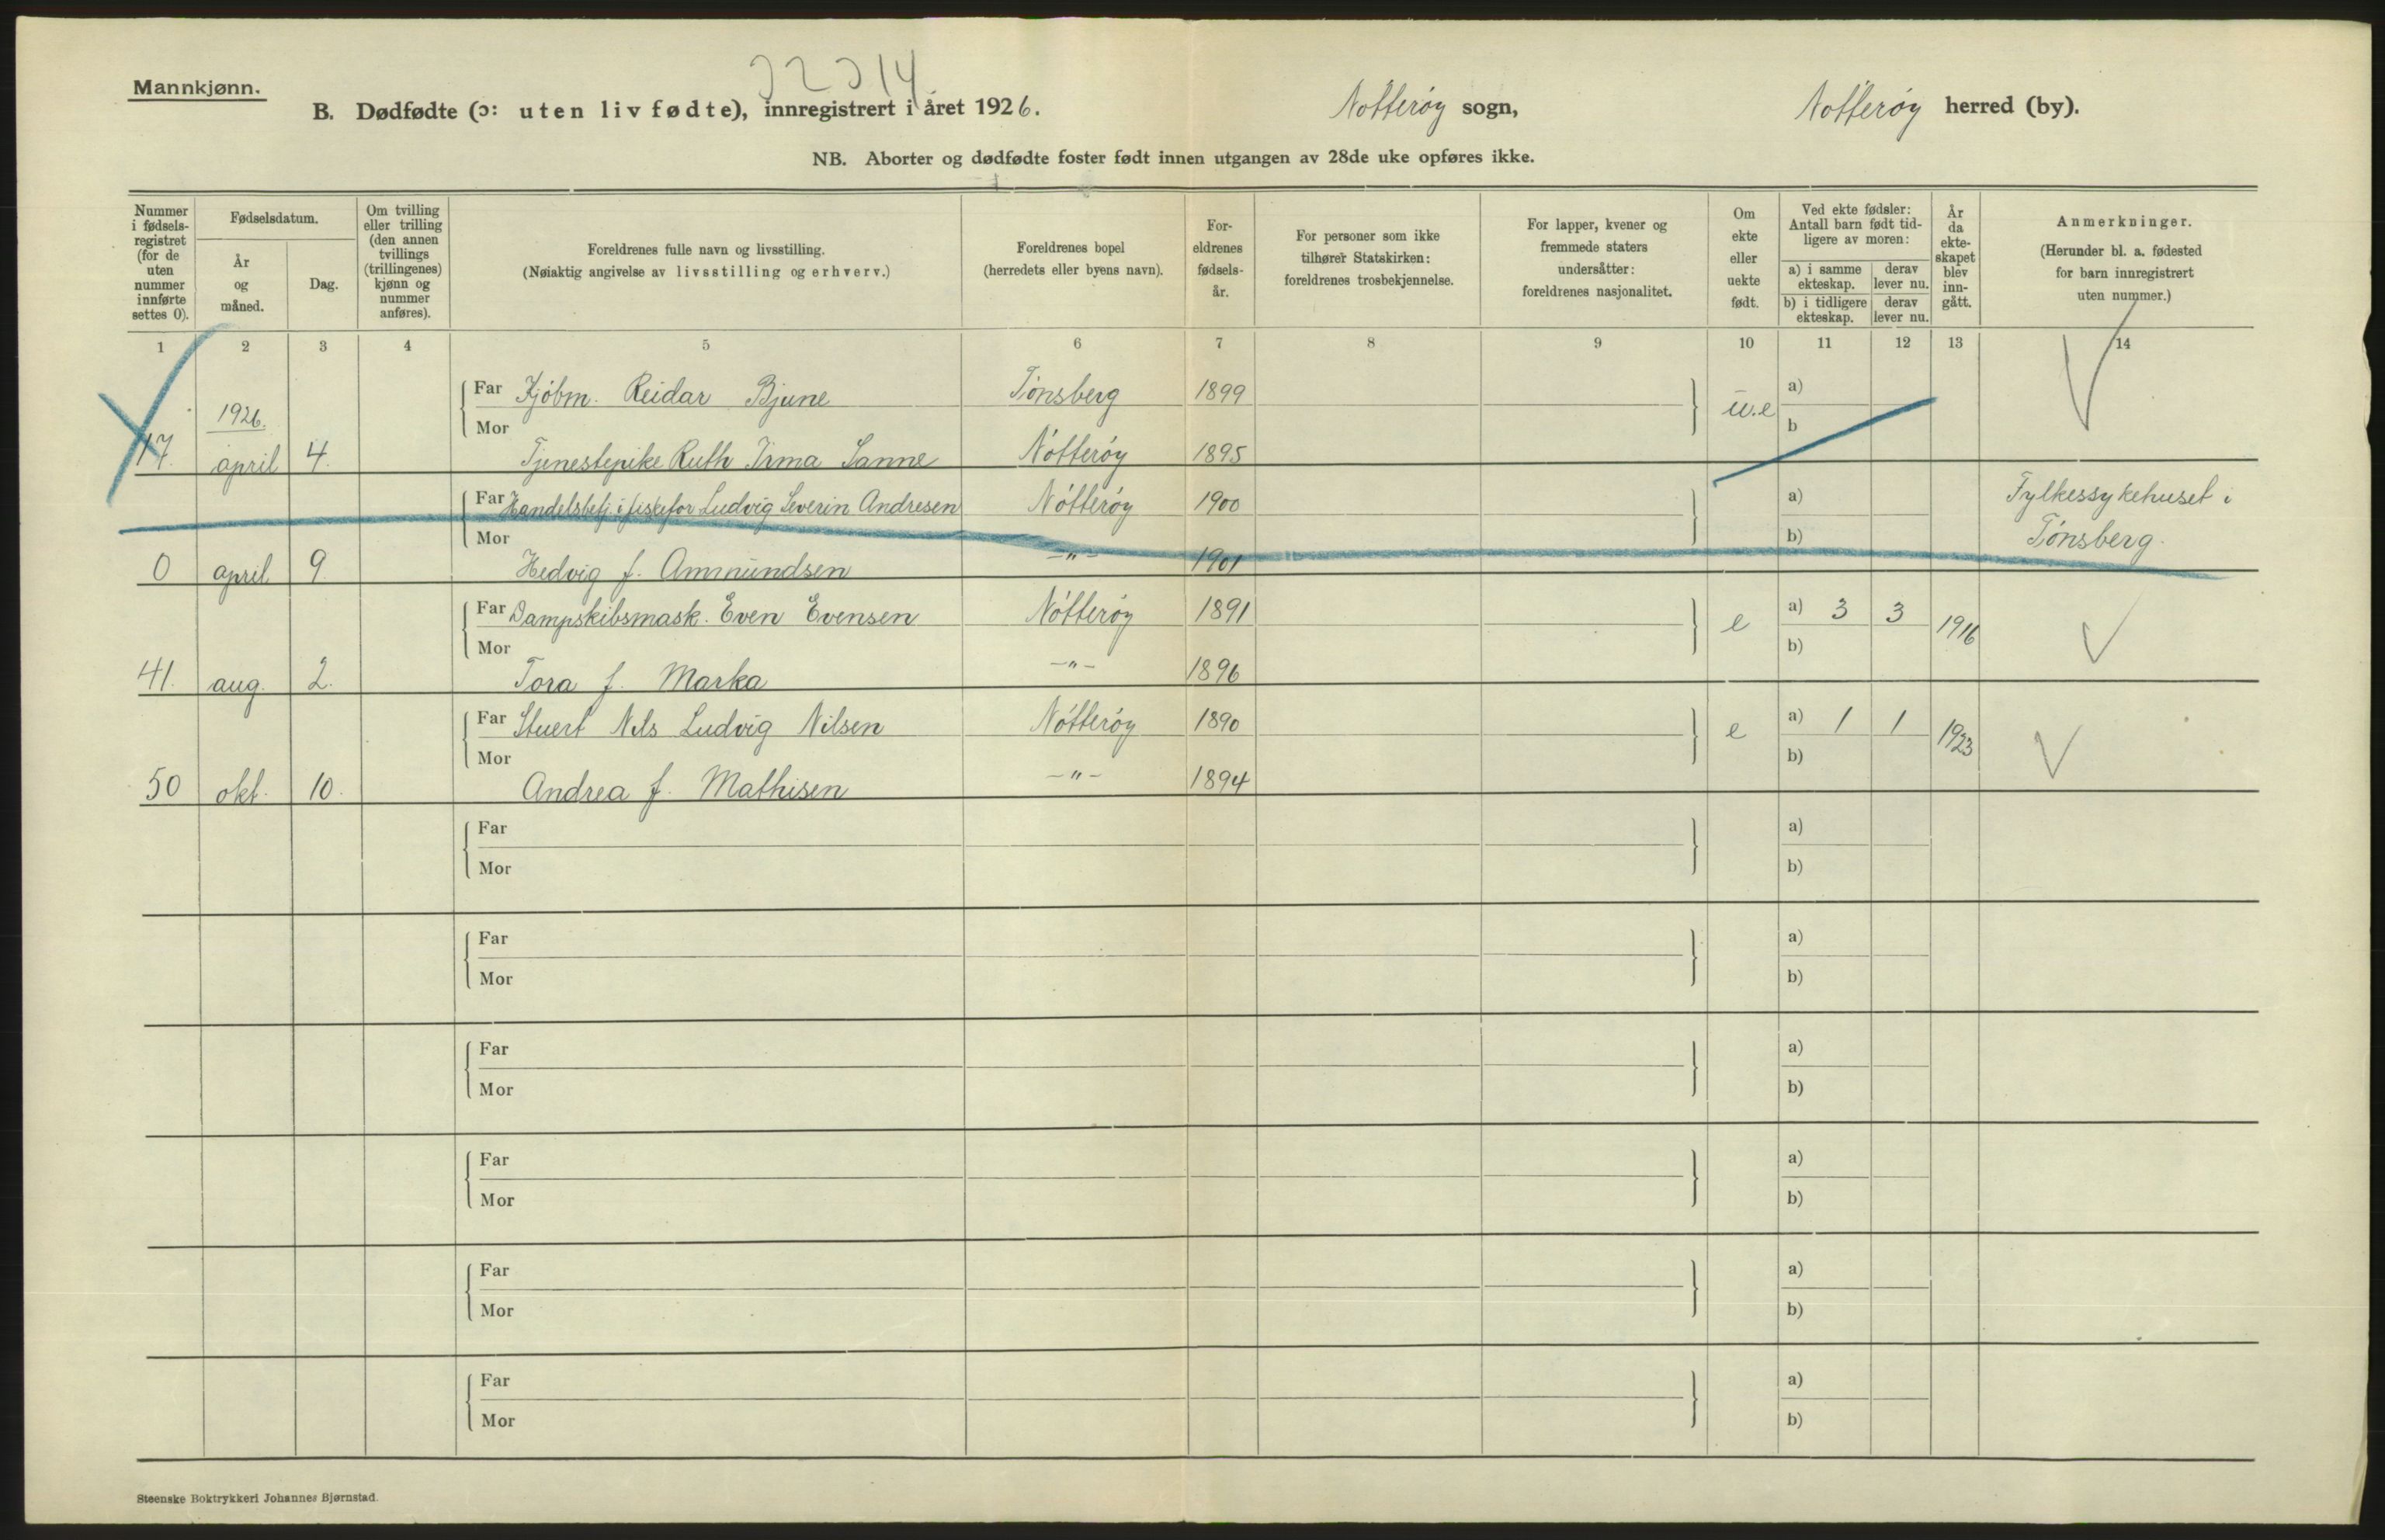 Mannkjønn.
B. Dødfødte (ɔ: uten liv fødte), innregistrert i året 1926.
Nøtterøy sogn,
Nøtterøy herred (by).
NB. Aborter og dødfødte foster født innen utgangen av 28de uke opføres ikke.
Nummer i fødsels-registret (for de uten nummer innførte settes 0).
Fødselsdatum.
År og måned.
Dag.
Om tvilling eller trilling (den annen tvillings (trillingenes) kjønn og nummer anføres).
Foreldrenes fulle navn og livsstilling.
(Nøiaktig angivelse av livsstilling og erhverv.)
Foreldrenes bopel
(herredets eller byens navn).
For-eldrenes fødsels-år.
For personer som ikke tilhører Statskirken: foreldrenes trosbekjennelse.
For lapper, kvener og fremmede staters undersåtter: foreldrenes nasjonalitet.
Om ekte eller uekte født.
Ved ekte fødsler: Antall barn født tid-ligere av moren:
a) i samme ekteskap.
derav lever nu.
b) i tidligere ekteskap.
derav lever nu.
År da ekte-skapet blev inn-gått.
Anmerkninger.
(Herunder bl. a. fødested for barn innregistrert uten nummer.)
1 2 3 4 5 6 7 8 9 10 11 12 13 14
Far Kjøbm. Reidar Bjune Tønsberg 1899 u.e a)
1926.
Mor b
17. april 4. Tjenestepike Ruth Irma Sanne Nøtterøy 1895
Far Handelsbetj. i fiskefor Ludvig Severin Andresen Nøtterøy 1900 a) Fylkessykehuset i
Mor b) Tønsberg.
0 april 9. Hedvig f. Ammundsen -"- 1901
Far Dampskibsmask. Even Evensen Nøtterøy 1891 e a) 3 3 1916
Mor b)
41. aug. 2. Tora f. Marka -"- 1896
Far Stuert Nils Ludvig Nilsen Nøtterøy 1890 e a) 1 1 1923
Mor b)
50 okt. 10. Andrea f. Mathisen -"- 1894
Far a)
Mor b)
Far a)
Mor b)
Far a)
Mor b)
Far a)
Mor b)
Far a)
Mor b)
Far a)
Mor b)
Steenske Boktrykkeri Johannes Bjørnstad.